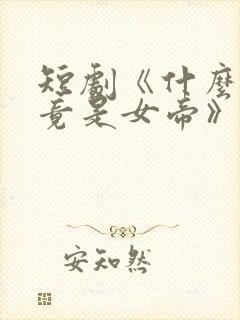 短劇《什麼
竟是女帝》
安知然